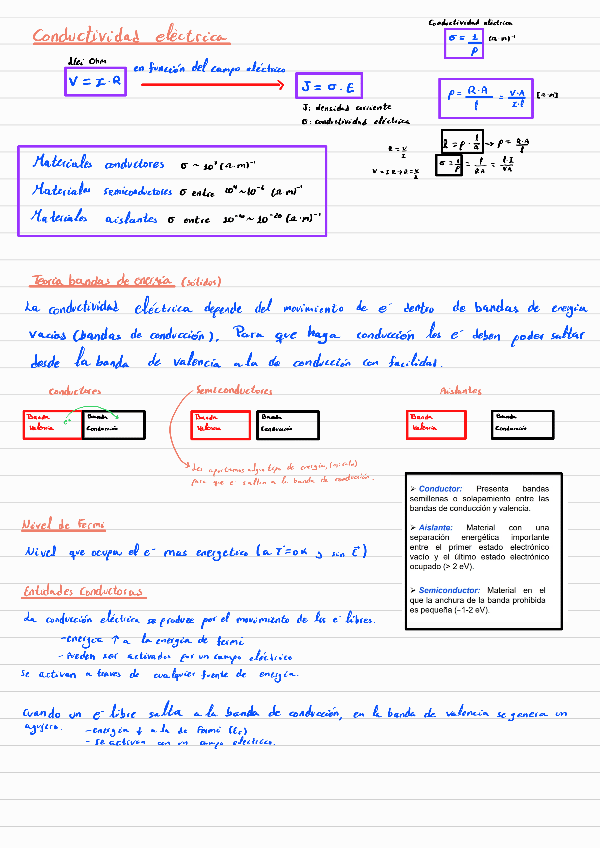 Conductividad eléctrica
Conductividad eléctrica
σ = 1/ρ (Ω·m)⁻¹
Llei Ohm
V = I · R
en función del campo eléctrico
J = σ · E
J: densidad corriente
σ: conductividad eléctrica
ρ = R·A/l = V·A/I·l [Ω·m]
R = V/I
V = I R → R = V/I
R = ρ · l/A → ρ = R·A/l
σ = 1/ρ = l/RA = l I/VA
Materiales conductores σ ~ 10⁷ (Ω·m)⁻¹
Materiales semiconductores σ entre 10⁴ ~ 10⁻⁶ (Ω·m)⁻¹
Materiales aislantes σ entre 10⁻¹⁰ ~ 10⁻²⁰ (Ω·m)⁻¹
Teoría bandas de energía (sólidos)
La conductividad eléctrica depende del movimiento de e⁻ dentro de bandas de energia
vacios (bandas de conducción). Para que haga conducción los e⁻ deben poder saltar
desde la banda de valencia a la de conducción con facilidad.
Conductores
Semiconductores
Aislantes
Banda Valencia
e⁻
Banda Conducción
Banda Valencia
Banda Conducción
Banda Valencia
Banda Conducción
Les aportamos algun tipo de energia,
para que e⁻ salten a la banda de conducción.
➢ Conductor: Presenta bandas
semillenas o solapamiento entre las
bandas de conducción y valencia.
➢ Aislante: Material con una
separación energética importante
entre el primer estado electrónico
vacío y el último estado electrónico
ocupado (> 2 eV).
➢ Semiconductor: Material en el
que la anchura de la banda prohibida
es pequeña (~1-2 eV).
Nivel de Fermi
Nivel que ocupa el e⁻ mas energetico (a T=0K y sin E)
Entidades Conductoras
La conducción eléctrica se produce por el movimiento de los e⁻ libres.
- energia ↑ a la energia de fermi
- Pueden ser activados por un campo eléctrico
Se activan a traves de cualquier fuente de energia.
Cuando un e⁻ libre salta a la banda de conducción, en la banda de valencia se genera un
agujero. - energia ↓ a la de Fermi (Ef)
- Se activan con un campo electrico.